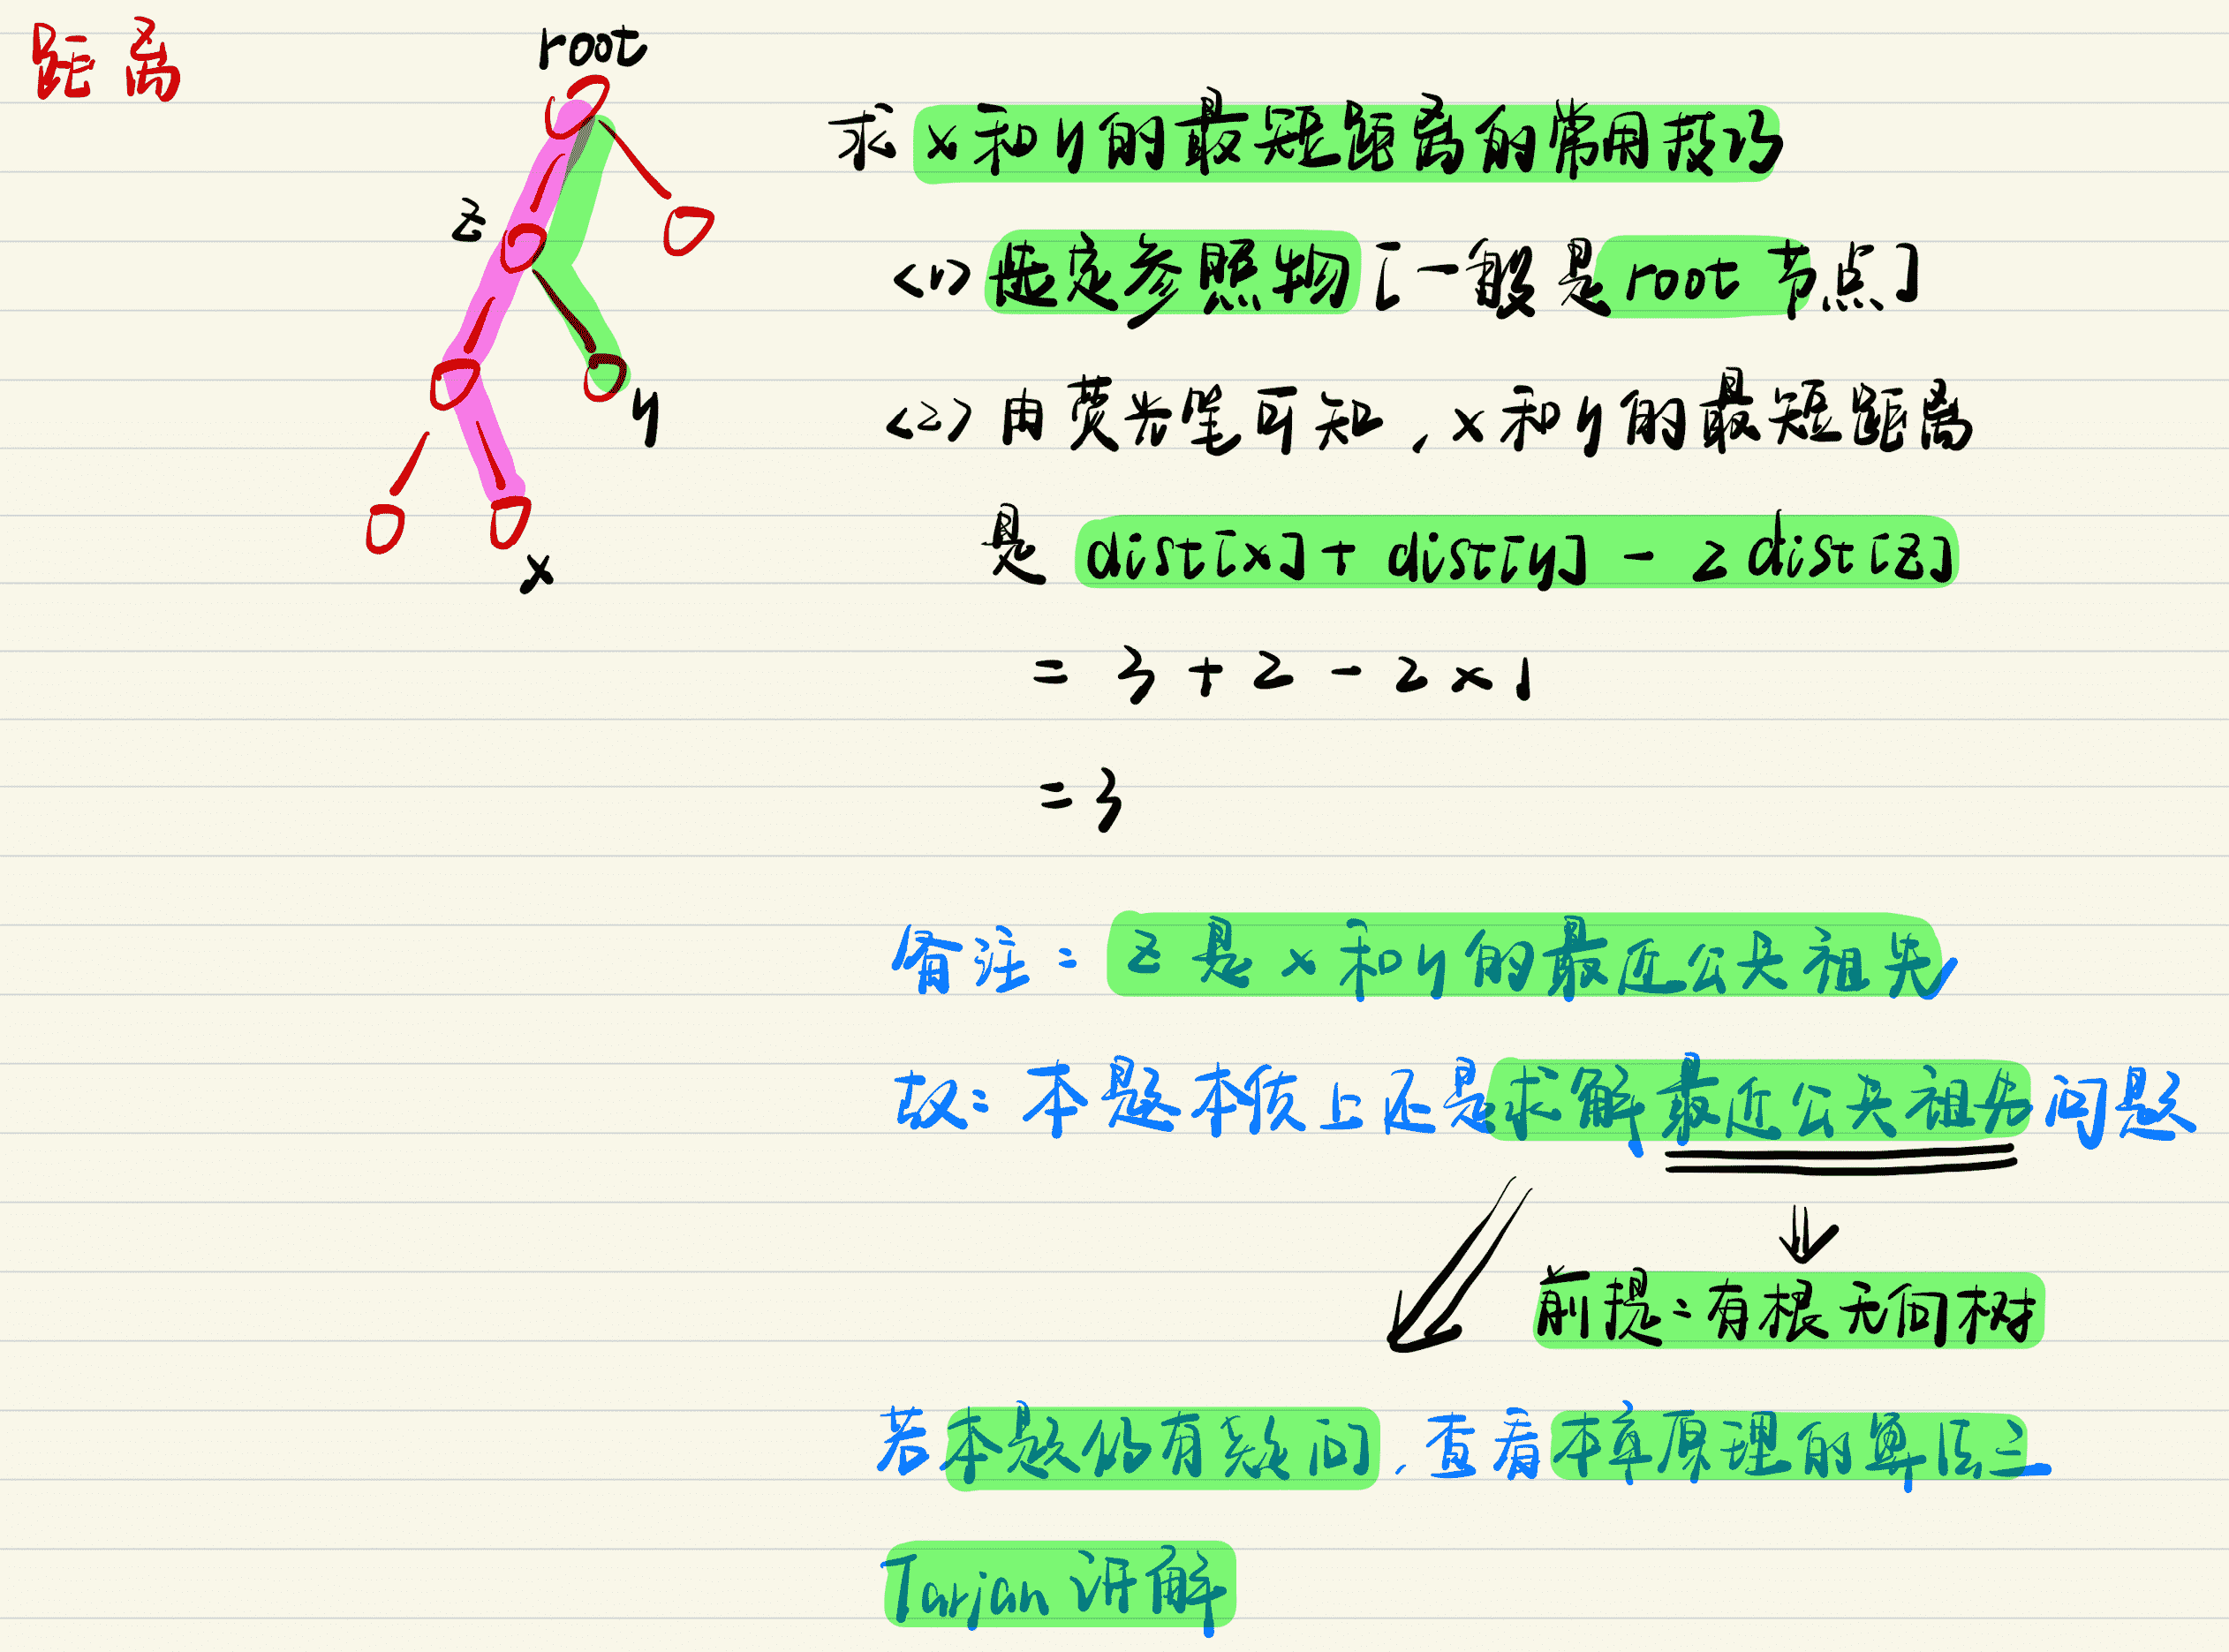 距离
root
z
y
x
求 x和y的最短距离的常用技巧
<1> 选定参照物 [一般是root 节点]
<2> 由荧光笔可知，x和y的最短距离
是 dist[x] + dist[y] - 2 dist[z]
= 3 + 2 - 2 × 1
= 3
备注: z是x和y的最近公共祖先
故: 本题本质上还是求解最近公共祖先问题
前提: 有根无向树
若本题仍有疑问，查看本章原理的算法二
Tarjan 讲解